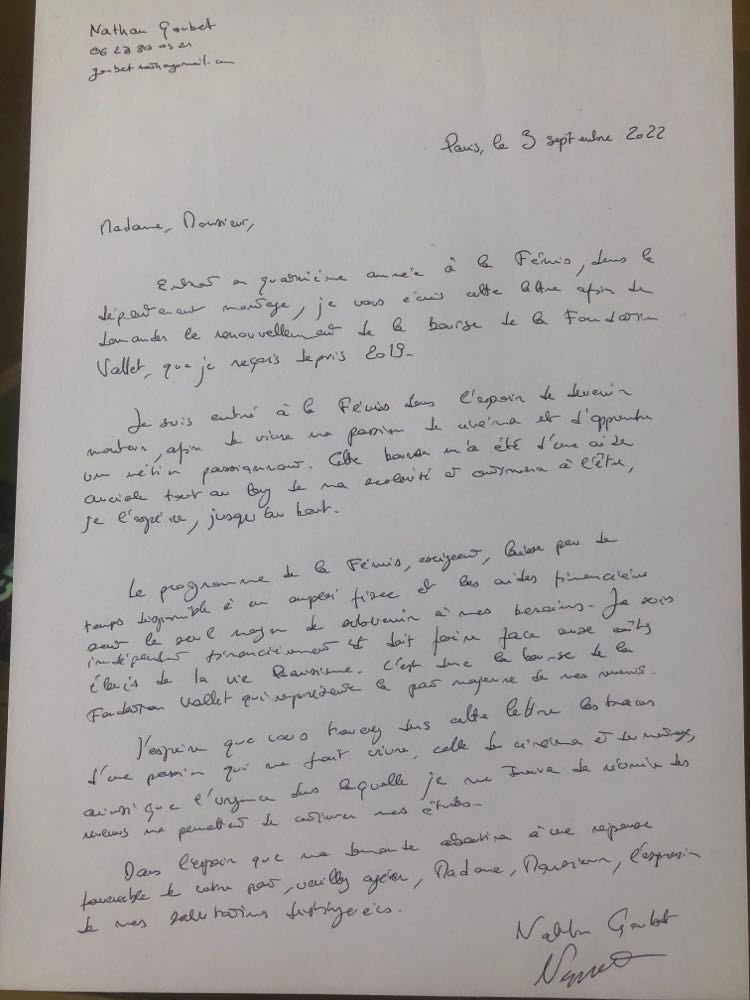 Nathan Goubet
06 23 80 03 21
Paris, le 3 septembre 2022
Madame, Monsieur,
Entrant en quatrième année à la Fémis, dans le
département montage, je vous écris cette lettre afin de
demander le renouvellement de la bourse de la Fondation
Vallet, que je reçois depuis 2019.
Je suis entré à la Fémis dans l'espoir de devenir
monteur, afin de vivre ma passion du cinéma et d'apprendre
un métier passionnant. Cette bourse m'a été d'une aide
cruciale tout au long de ma scolarité et continuera à l'être,
je l'espère, jusqu'au bout.
Le programme de la Fémis, exigeant, laisse peu de
temps disponible à un emploi fixe et les aides financières
sont le seul moyen de subvenir à mes besoins. Je suis
indépendant financièrement et doit faire face aux coûts
élevés de la vie Parisienne. C'est donc la bourse de la
Fondation Vallet qui représente la part majeure de mes revenus.
J'espère que vous trouverez dans cette lettre les traces
d'une passion qui me fait vivre, celle du cinéma et du montage,
ainsi que l'urgence dans laquelle je me trouve de réunir des
revenus me permettant de continuer mes études.
Dans l'espoir que ma demande aboutira à une réponse
favorable de votre part, veuillez agréer, Madame, Monsieur, l'expression
de mes salutations distinguées.
Nathan Goubet